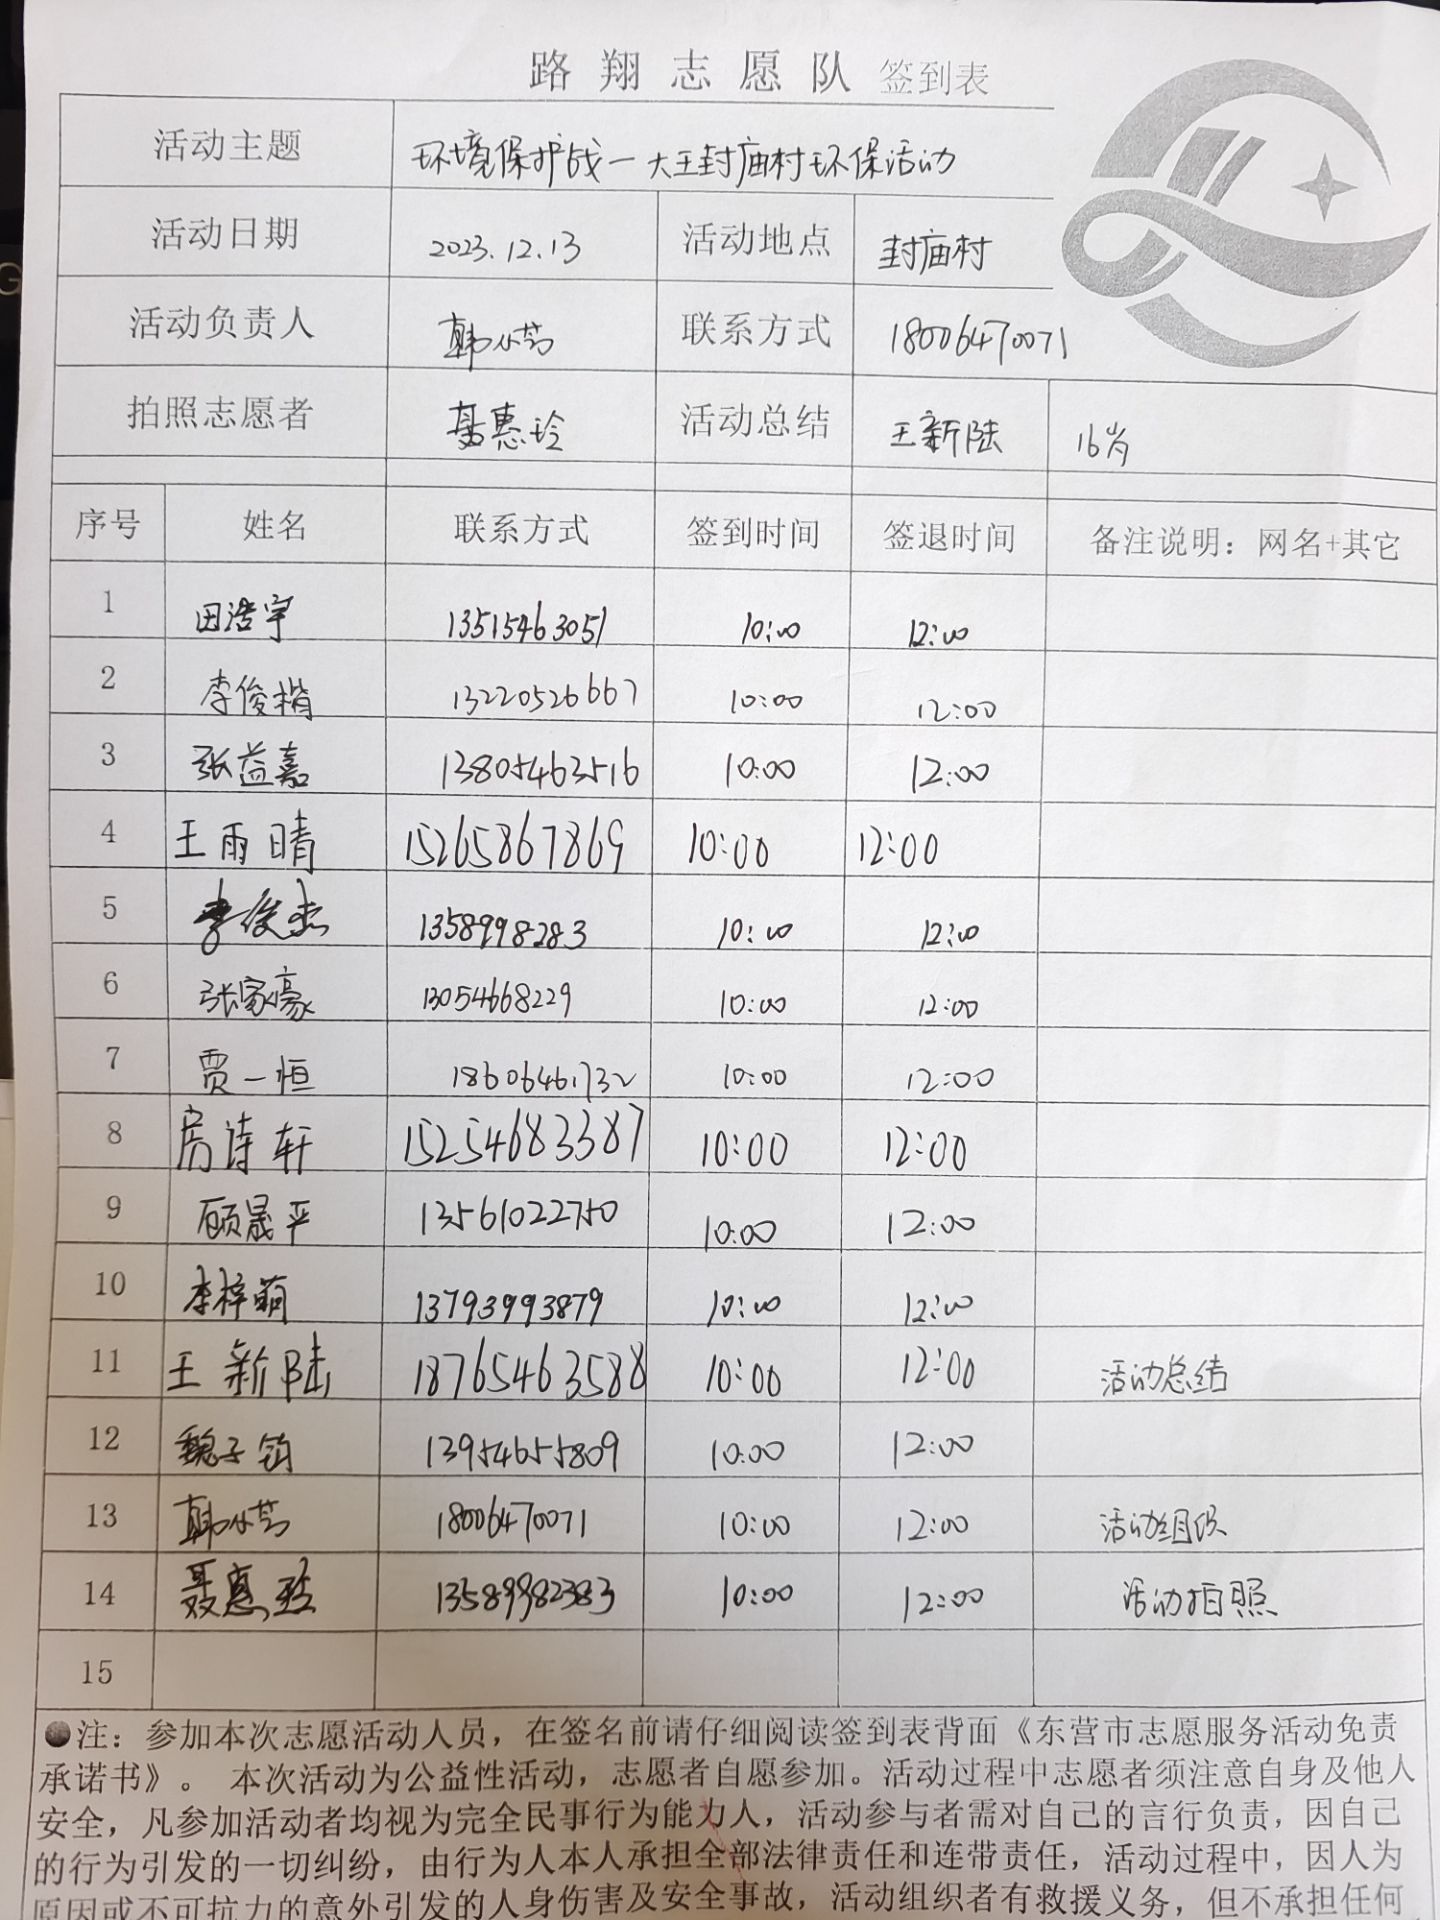 路翔志愿队 签到表
活动主题 环境保护战一大王封庙村环保活动
活动日期 2023.12.13 活动地点 封庙村
活动负责人 韩小芳 联系方式 18006470071
拍照志愿者 聂惠玲 活动总结 王新陆 16岁
序号 姓名 联系方式 签到时间 签退时间 备注说明：网名+其它
1 田浩宇 13515463051 10:00 12:00
2 李俊楷 13220526667 10:00 12:00
3 张益嘉 13805463516 10:00 12:00
4 王雨晴 15265867869 10:00 12:00
5 李俊杰 1358998283 10:00 12:00
6 张家豪 13054668229 10:00 12:00
7 贾一恒 18606461732 10:00 12:00
8 房诗轩 15254683387 10:00 12:00
9 顾晟平 13561022750 10:00 12:00
10 李梓萌 13793993879 10:00 12:00
11 王新陆 18765463588 10:00 12:00 活动总结
12 魏子钧 13954655809 10:00 12:00
13 韩小芳 18006470071 10:00 12:00 活动组织
14 聂惠玲 13589982383 10:00 12:00 活动拍照
15
●注：参加本次志愿活动人员，在签名前请仔细阅读签到表背面《东营市志愿服务活动免责
承诺书》。 本次活动为公益性活动，志愿者自愿参加。活动过程中志愿者须注意自身及他人
安全，凡参加活动者均视为完全民事行为能力人，活动参与者需对自己的言行负责，因自己
的行为引发的一切纠纷，由行为人本人承担全部法律责任和连带责任，活动过程中，因人为
原因或不可抗力的意外引发的人身伤害及安全事故，活动组织者有救援义务，但不承担任何